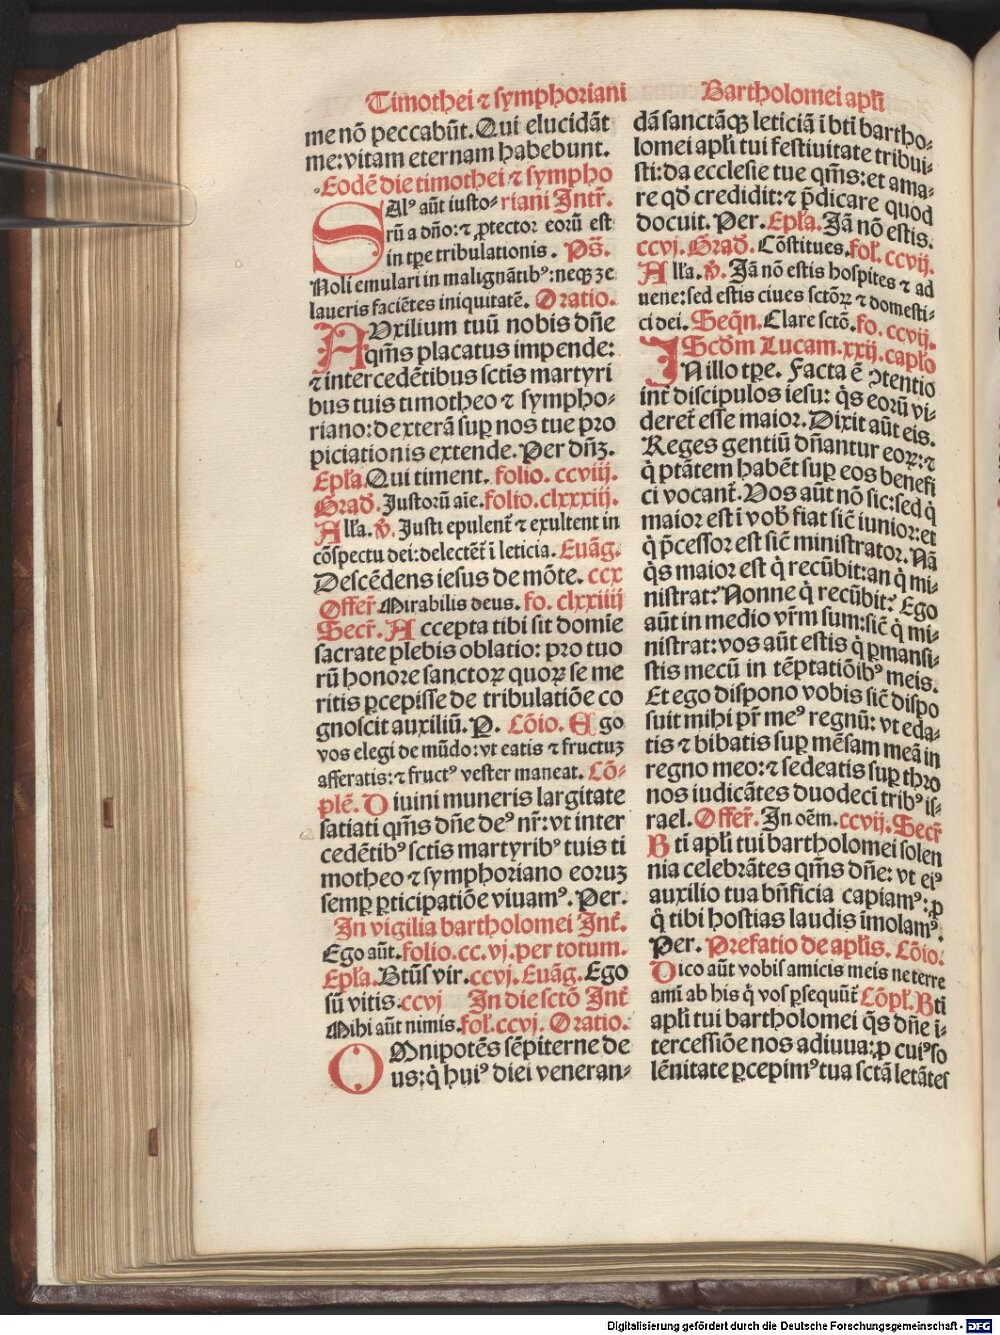 Timothei ⁊ symphoriani
me nō peccabūt. Qui elucidāt
me: vitam eternam habebunt.
Eodē die timothei ⁊ sympho
Salꝰ aūt iusto- riani Intr̄.
rū a dño: ⁊ ꝓtector eorū est
in tꝑe tribulationis. Ps̄.
Noli emulari in malignātibꝰ: neqꝫ ze
laueris faciētes iniquitatē. Oratio.
AUxilium tuū nobis dñe
qm̄s placatus impende:
⁊ intercedētibus sctīs martyri
bus tuis timotheo ⁊ sympho-
riano: dexterā suꝑ nos tue pro
piciationis extende. Per dñꝫ.
Epl̄a. Qui timent. folio. ccviij.
Grad̄. Justorū aīe. folio. clxxxiij.
All̄a. ℣. Justi epulent̄ ⁊ exultent in
cōspectu dei: delectēt̄ ī leticia. Euāg.
Descēdens iesus de mōte. ccx
Offer̄ Mirabilis deus. fo. clxxiiij
Secr̄. Accepta tibi sit domie
sacrate plebis oblatio: pro tuo
rū honore sanctoꝝ quoꝝ se me
ritis ꝑcepisse de tribulatiōe co
gnoscit auxiliū. P. Cōio. Ego
vos elegi de mūdo: vt eatis ⁊ fructuꝫ
afferatis: ⁊ fructꝰ vester maneat. Cō-
plē. Diuini muneris largitate
satiati qm̄s dñe deꝰ nr̄: vt inter
cedētibꝰ sctīs martyribꝰ tuis ti
motheo ⁊ symphoriano eoruꝫ
semꝑ ꝑticipatiōe viuamꝰ. Per.
In vigilia bartholomei Int̄.
Ego aūt. folio. cc. vj. per totum.
Epl̄a. Btūs vir. ccvj. Euāg. Ego
sū vitis. ccvj In die sctō Int̄
Mihi aūt nimis. fol̄. ccvj. Oratio.
OMnipotēs sēpiterne de
us: q̇ huiꝰ diei veneran-
Bartholomei apl̄i
dā sanctāqꝫ leticiā ī btī bartho-
lomei apl̄i tui festiuitate tribui-
sti: da ecclesie tue qm̄s: et ama-
re qd̄ credidit: ⁊ p̄dicare quod
docuit. Per. Epl̄a. Jā nō estis.
ccvj. Grad̄. Cōstitues. fol̄. ccvij.
All̄a. ℣. Jā nō estis hospites ⁊ ad
uene: sed estis ciues sctōꝝ ⁊ domesti-
ci dei. Seqn̄. Clare sctō. fo. ccvij.
Scdm̄ Lucam. xxij. capl̄o
IN illo tꝑe. Facta ē ꝯtentio
int̄ discipulos iesu: q̇s eorū vi-
deret̄ esse maior. Dixit aūt eis.
Reges gentiū dn̄antur eoꝝ: ⁊
q̇ ptātem habēt suꝑ eos benefi
ci vocant̄. Vos aūt nō sic: sed q̇
maior est ī vob̄ fiat sic̄ iunior: et
q̇ p̄cessor est sic̄ ministrator. Nā
q̇s maior est q̇ recūbit: an q̇ mi-
nistrat? Nonne q̇ recūbit? Ego
aūt in medio vr̄m sum: sic̄ q̇ mi-
nistrat: vos aūt estis q̇ ꝑmansi-
stis mecū in tēptatiōibꝰ meis.
Et ego dispono vobis sic̄ dispo
suit mihi pr̄ meꝰ regnū: vt eda-
tis ⁊ bibatis suꝑ mēsam meā in
regno meo: ⁊ sedeatis suꝑ thro
nos iudicātes duodecī tribꝰ is-
rael. Offer̄. In oēm. ccvij. Secr̄
Btī apl̄i tui bartholomei solen
nia celebrātes qm̄s dñe: vt eiꝰ
auxilio tua bn̄ficia capiamꝰ: ꝓ
q̇ tibi hostias laudis īmolamꝰ.
Per. Prefatio de apl̄is. Cōio:
Dico aūt vobis amicis meis ne terre
amī ab his q̇ vos ꝑsequūt̄ Cōpl̄. Btī
apl̄i tui bartholomei q̄s dñe i-
tercessiōe nos adiuua: ꝓ cuiꝰ so
lēnitate ꝑcepimꝰ tua sctā letātes
Digitalisierung gefördert durch die Deutsche Forschungsgemeinschaft - DFG